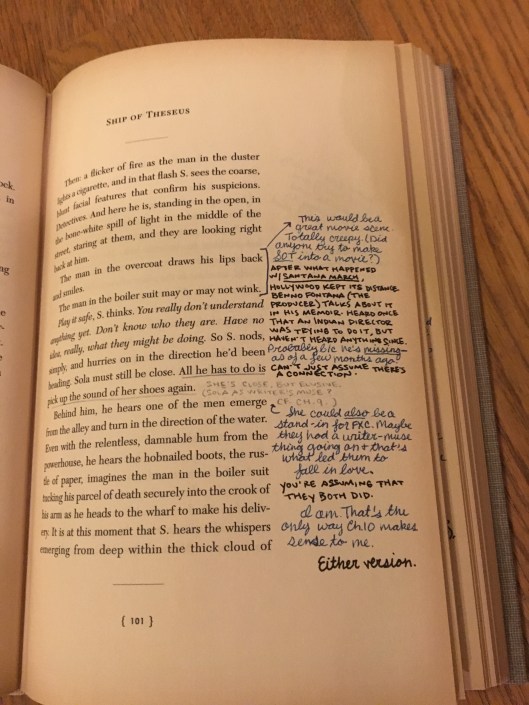 SHIP OF THESEUS
Then: a flicker of fire as the man in the duster
lights a cigarette, and in that flash S. sees the coarse,
blunt facial features that confirm his suspicions.
Detectives. And here he is, standing in the open, in
the bone-white spill of light in the middle of the
street, staring at them, and they are looking right
back at him.
The man in the overcoat draws his lips back
and smiles.
The man in the boiler suit may or may not wink.
Play it safe, S. thinks. You really don't understand
anything yet. Don't know who they are. Have no
idea, really, what they might be doing. So S. nods,
simply, and hurries on in the direction he'd been
heading. Sola must still be close. All he has to do is
pick up the sound of her shoes again.
Behind him, he hears one of the men emerge
from the alley and turn in the direction of the water.
Even with the relentless, damnable hum from the
powerhouse, he hears the hobnailed boots, the rus-
tle of paper, imagines the man in the boiler suit
tucking his parcel of death securely into the crook of
his arm as he heads to the wharf to make his deliv-
ery. It is at this moment that S. hears the whispers
emerging from deep within the thick cloud of
{ 101 }
This would be a
great movie scene.
Totally creepy. (Did
anyone try to make
SOT into a movie?)
AFTER WHAT HAPPENED
W/ SANTANA MARCH,
HOLLYWOOD KEPT ITS DISTANCE.
BENNO FONTANA (THE
PRODUCER) TALKS ABOUT IT
IN HIS MEMOIR. HEARD ONCE
THAT AN INDIAN DIRECTOR
WAS TRYING TO DO IT, BUT
HAVEN'T HEARD ANYTHING SINCE.
Probably b/c he's missing—
as of a few months ago?
CAN'T JUST ASSUME THERE'S
A CONNECTION.
SHE'S CLOSE, BUT ELUSIVE.
(SOLA AS WRITER'S MUSE?
CF. CH. 9.)
She could also be a
stand-in for FXC. Maybe
they had a writer-muse
thing going on & that's
what led them to
fall in love.
YOU'RE ASSUMING THAT
THEY BOTH DID.
I am. That's the
only way Ch. 10 makes
sense to me.
Either version.
ock.
in
ng